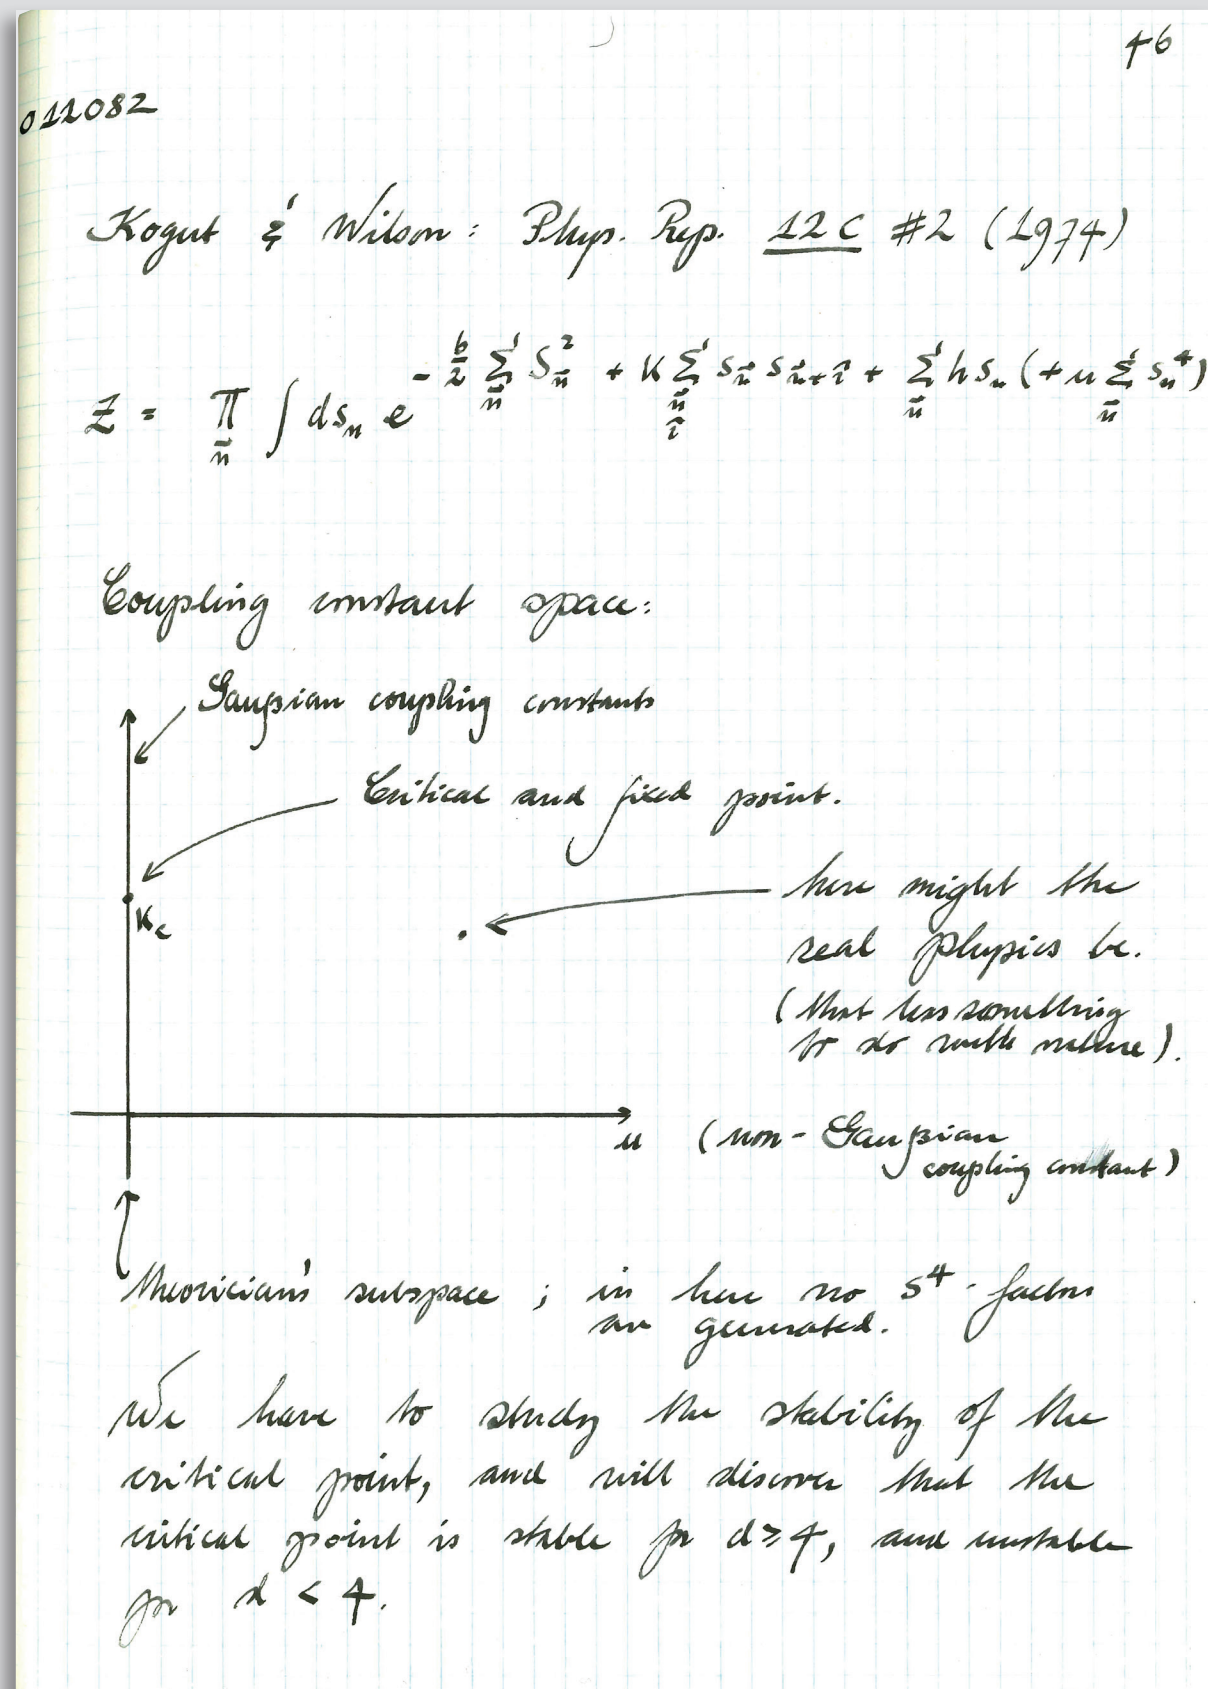 46
011082
Kogut & Wilson: Phys. Rep. 12C #2 (1974)
Z = ∏_n̄ ∫ ds_n e^{- b/2 Σ_n̄ S_n̄² + K Σ_{n̄ î} s_n̄ s_{n̄+î} + Σ_n̄ h s_n (+ u Σ_n̄ s_n⁴)}
Coupling constant space:
Gaussian coupling constants
Critical and fixed point.
K_c
here might the
real physics be.
(that has something
to do with nature).
u (non-Gaussian
coupling constant)
theorician's subspace ; in here no S⁴-factors
are generated.
We have to study the stability of the
critical point, and will discover that the
critical point is stable for d≥4, and unstable
for d < 4.